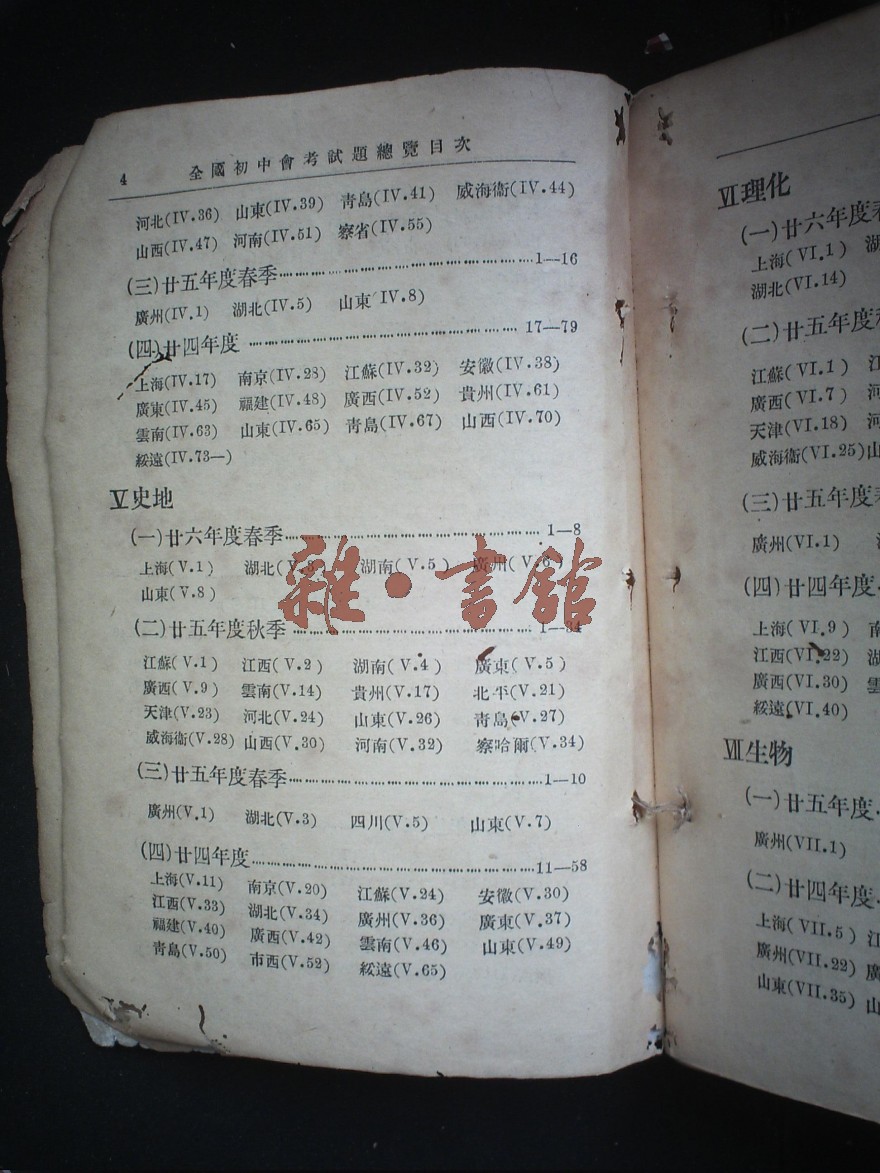 4 全國初中會考試題總覽目次
河北(IV.36) 山東(IV.39) 青島(IV.41) 威海衞(IV.44)
山西(IV.47) 河南(IV.51) 察省(IV.55)
(三)廿五年度春季……1—16
廣州(IV.1) 湖北(IV.5) 山東(IV.8)
(四)廿四年度……17—79
上海(IV.17) 南京(IV.28) 江蘇(IV.32) 安徽(IV.38)
廣東(IV.45) 福建(IV.48) 廣西(IV.52) 貴州(IV.61)
雲南(IV.63) 山東(IV.65) 青島(IV.67) 山西(IV.70)
綏遠(IV.73—)
V史地
(一)廿六年度春季……1—8
上海(V.1) 湖北(V.3) 湖南(V.5) 廣州(V.6)
山東(V.8)
雜·書舘
(二)廿五年度秋季……1—34
江蘇(V.1) 江西(V.2) 湖南(V.4) 廣東(V.5)
廣西(V.9) 雲南(V.14) 貴州(V.17) 北平(V.21)
天津(V.23) 河北(V.24) 山東(V.26) 青島(V.27)
威海衞(V.28) 山西(V.30) 河南(V.32) 察哈爾(V.34)
(三)廿五年度春季……1—10
廣州(V.1) 湖北(V.3) 四川(V.5) 山東(V.7)
(四)廿四年度……11—58
上海(V.11) 南京(V.20) 江蘇(V.24) 安徽(V.30)
江西(V.33) 湖北(V.34) 廣州(V.36) 廣東(V.37)
福建(V.40) 廣西(V.42) 雲南(V.46) 山東(V.49)
青島(V.50) 市西(V.52) 綏遠(V.65)
VI理化
(一)廿六年度春
上海(VI.1) 湖
湖北(VI.14)
(二)廿五年度
江蘇(VI.1) 江
廣西(VI.7) 河
天津(VI.18) 河
威海衞(VI.25)山
(三)廿五年度
廣州(VI.1)
(四)廿四年度
上海(VI.9) 南
江西(VI.22) 湖
廣西(VI.30) 雲
綏遠(VI.40)
VII生物
(一)廿五年度
廣州(VII.1)
(二)廿四年度
上海(VII.5) 江
廣州(VII.22) 廣
山東(VII.35) 山